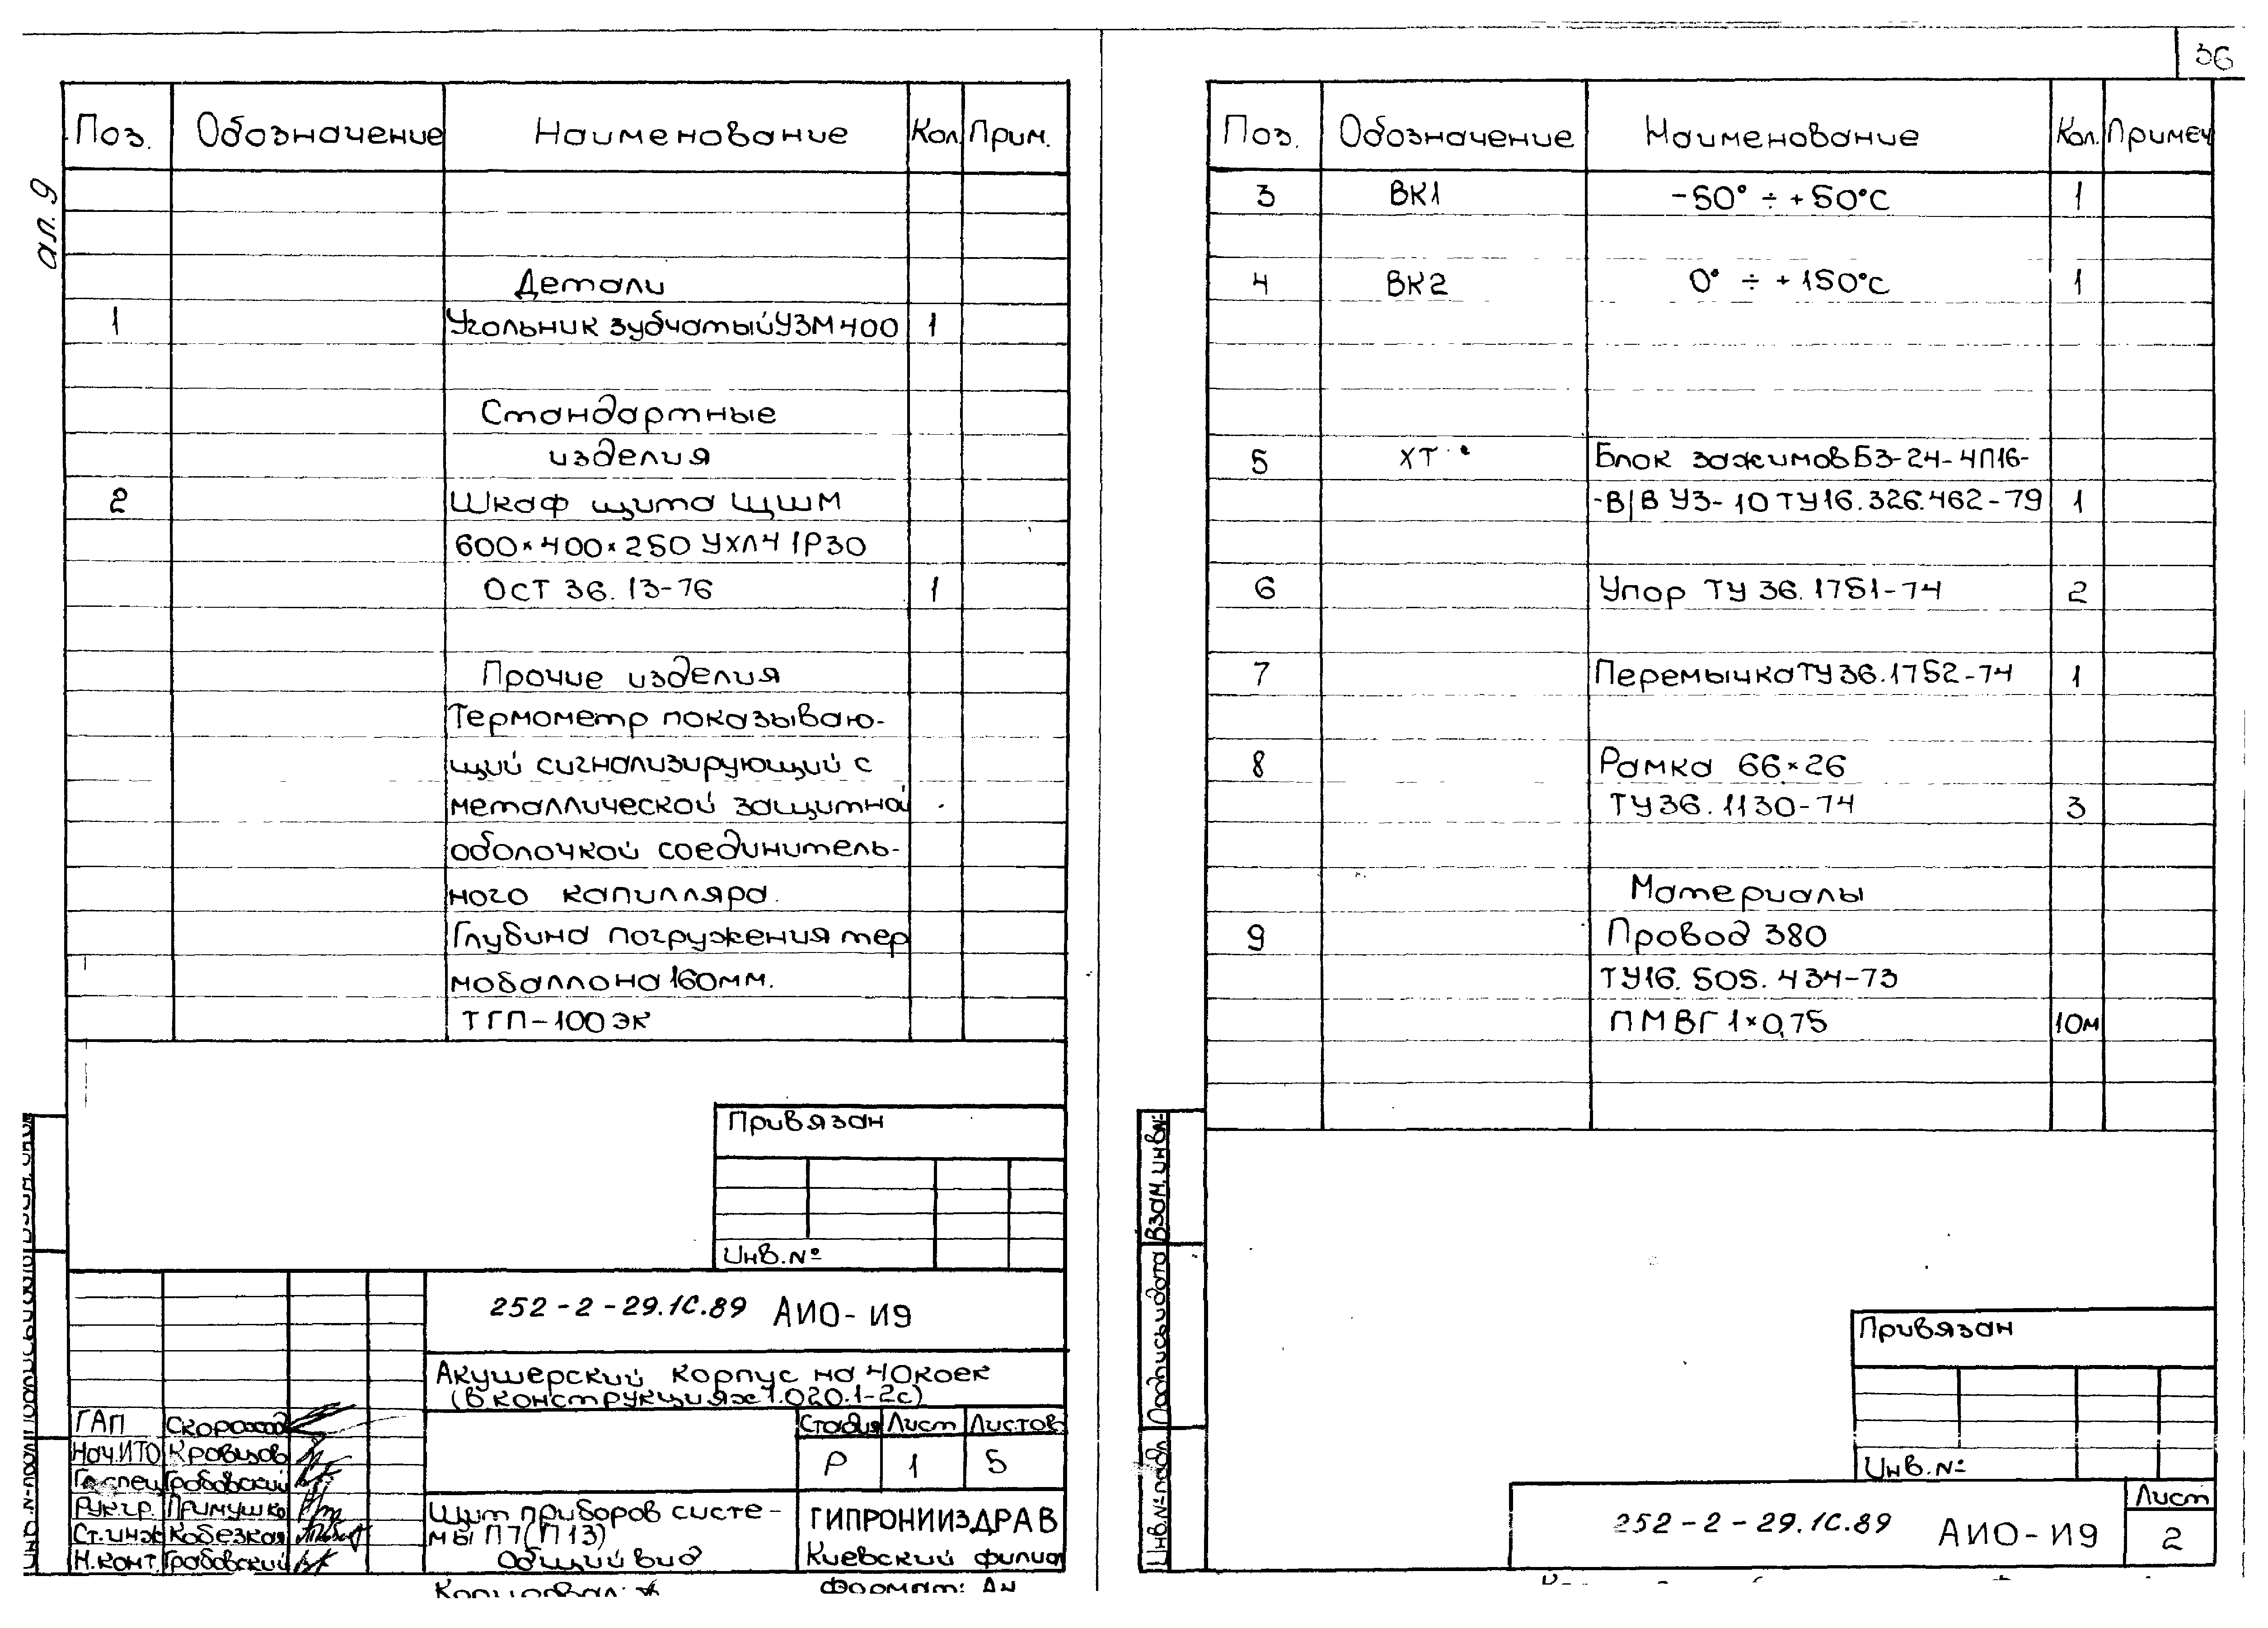 36
ал. 9
Поз. Обозначение Наименование Кол. Прим.
Детали
1 Угольник зубчатый УЗМ 400 1
Стандартные
изделия
2 Шкаф щита ЩШМ
600×400×250 УХЛ4 IР30
ОСТ 36.13-76 1
Прочие изделия
Термометр показываю-
щий сигнализирующий с
металлической защитной
оболочкой соединитель-
ного капилляра.
Глубина погружения тер
мобаллона 160мм.
ТГП-100 ЭК
Привязан
Инв.№
252-2-29.1С.89 АИО-И9
Акушерский корпус на 40 коек
(в конструкциях 1.020.1-2с)
Стадия Лист Листов
Р 1 5
ГАП Скороход
Нач.ИТО Кравцов
Гл.спец Грабовский
Рук.гр. Примушко
Ст.инж Кобезкая
Н.конт. Грабовский
Щит приборов систе-
мы П7(П13)
Общий вид
ГИПРОНИИЗДРАВ
Киевский филиал
Копировал:
Формат: А4
Поз. Обозначение Наименование Кол. Примеч
3 ВК1 -50° ÷ +50°С 1
4 ВК2 0° ÷ +150°С 1
5 ХТ Блок зажимов БЗ-24-4П16-
-В/В УЗ-10 ТУ16.326.462-79 1
6 Упор ТУ 36.1751-74 2
7 Перемычка ТУ 36.1752-74 1
8 Рамка 66×26
ТУ36.1130-74 3
Материалы
9 Провод 380
ТУ16.505.434-73
ПМВГ 1×0,75 10м
Взам. инв.№
Подпись и дата
Инв.№ подл.
Привязан
Инв.№
252-2-29.1С.89 АИО-И9
Лист
2